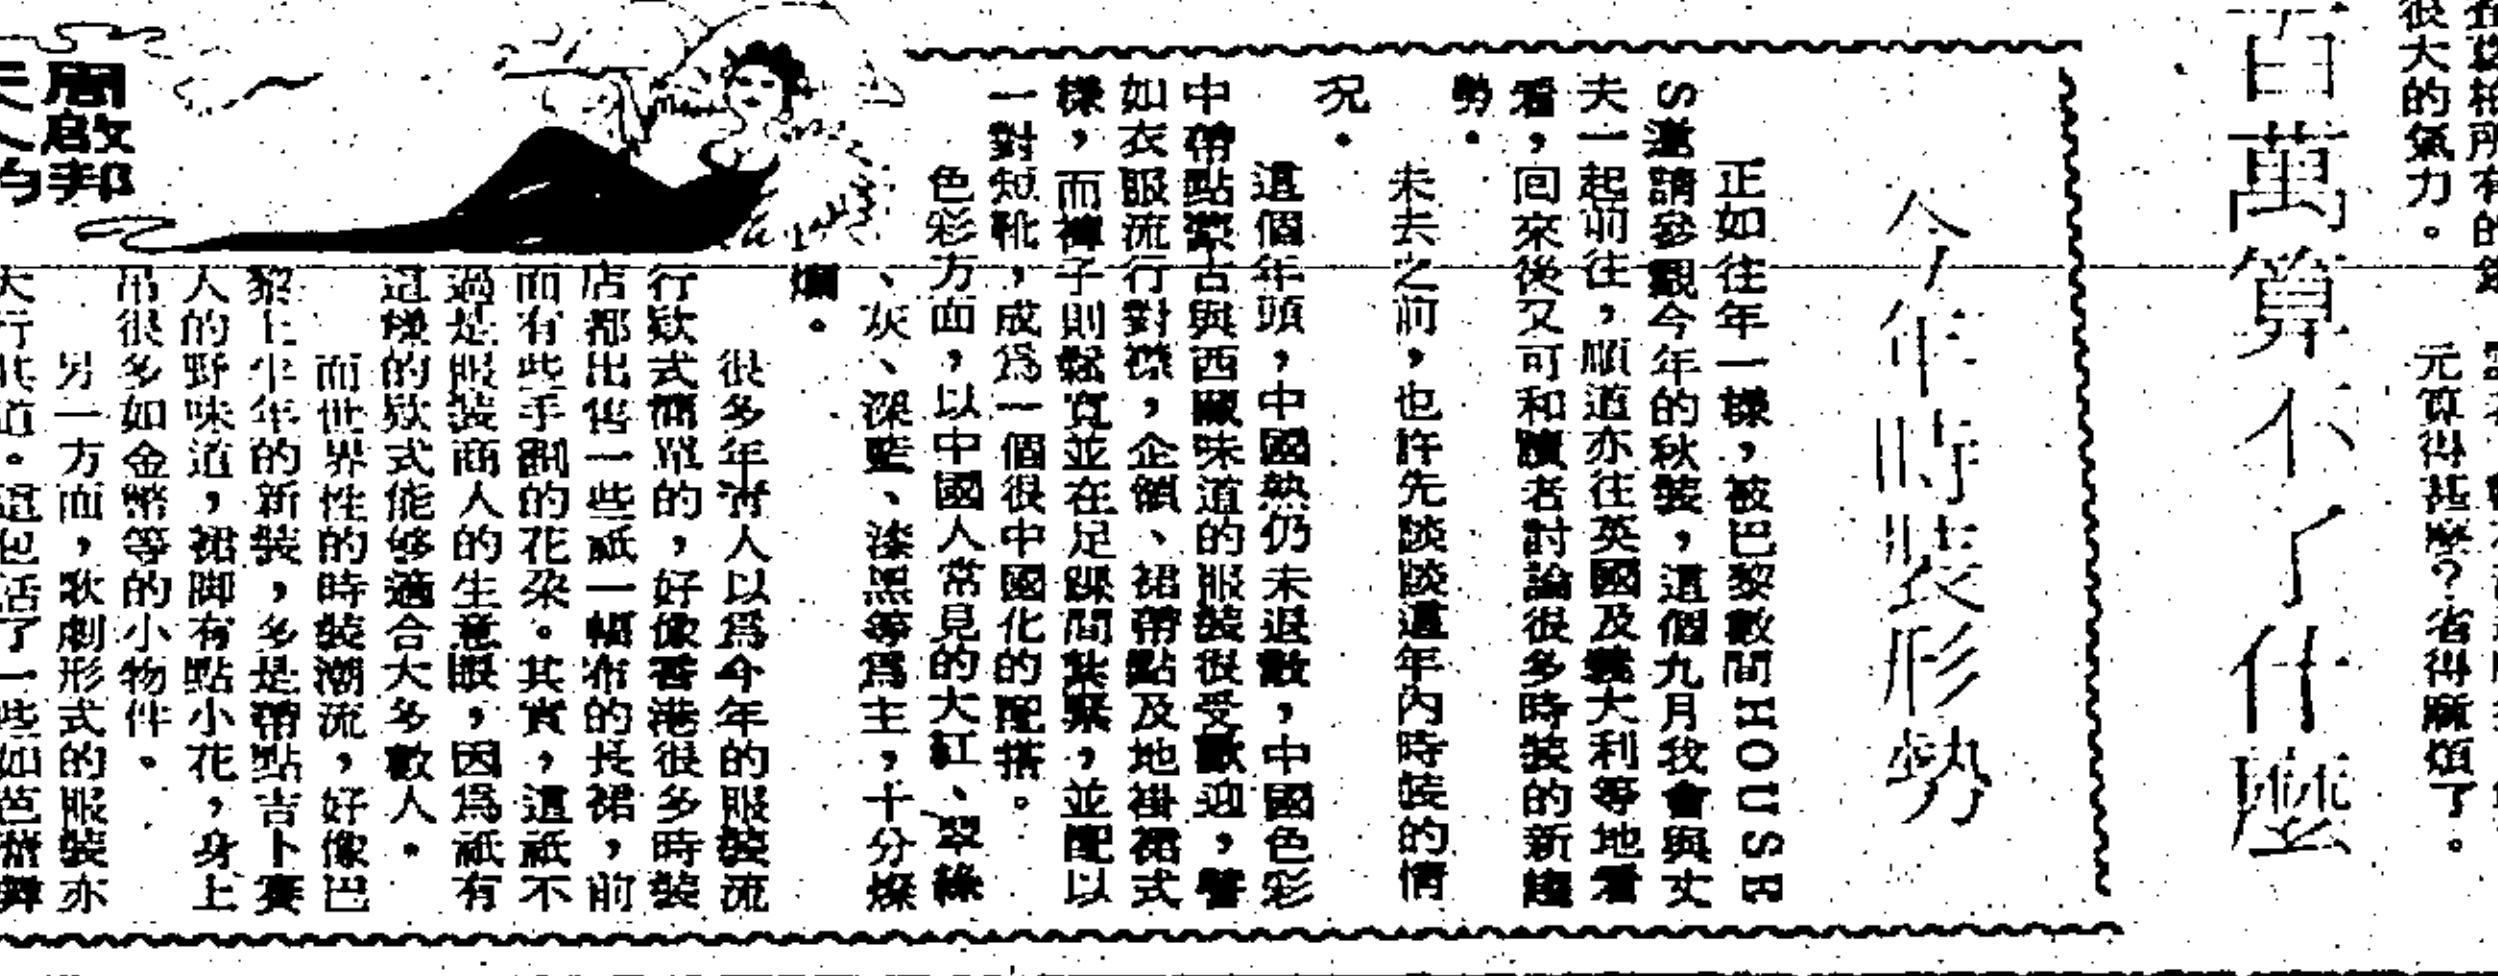 很大的氣力。
元算得甚麼？省得麻煩了。
百萬算不了什麼
今年時裝形勢
正如往年一樣，被巴黎數間HOUSE
S邀請參觀今年的秋裝，這個九月我會與丈
夫一起前往，順道亦往英國及義大利等地看
看，回來後又可和讀者討論很多時裝的新趨
勢。
未去之前，也許先談談這年內時裝的情
況。
這個年頭，中國熱仍未退散，中國色彩
中帶點蒙古與西藏味道的服裝很受歡迎，譬
如衣服流行對襟，企領、裙帶點及地褂裙式
樣，而褲子則輕寬並在足踝間紮緊，並配以
一對短靴，成為一個很中國化的配搭。
色彩方面，以中國人常見的大紅、翠綠
、灰、深藍、漆黑等為主，十分燦
爛。
很多年青人以為今年的服裝流
行欵式簡單的，好像香港很多時裝
店都出售一些祇一幅布的長裙，前
而有些手劃的花朶。其實，這祇不
過是服裝商人的生意眼，因為祇有
這樣的欵式能够適合大多數人。
而世界性的時裝潮流，好像巴
黎上半年的新裝，多是帶點吉卜賽
人的野味道，裙脚有點小花，身上
吊很多如金幣等的小物件。
另一方面，歌劇形式的服裝亦
大行其道。這包括了一些如芭蕾舞
周啟邦